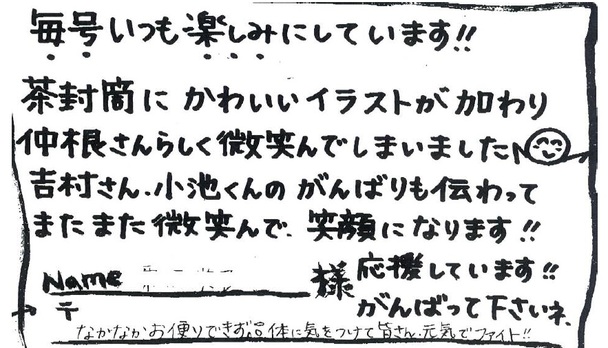 毎号いつも楽しみにしています!!
茶封筒にかわいいイラストが加わり
仲根さんらしく微笑んでしまいました
吉村さん、小池くんのがんばりも伝わって
またまた微笑んで、笑顔になります!!
Name 様 応援しています!!
〒 がんばって下さいネ。
なかなかお便りできず。お体に気をつけて皆さん、元気でファイト!!